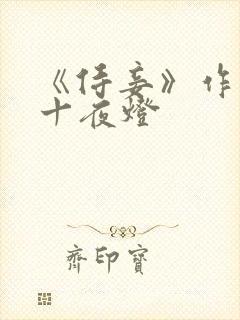 《侍妾》作
十夜燈
齊印寶